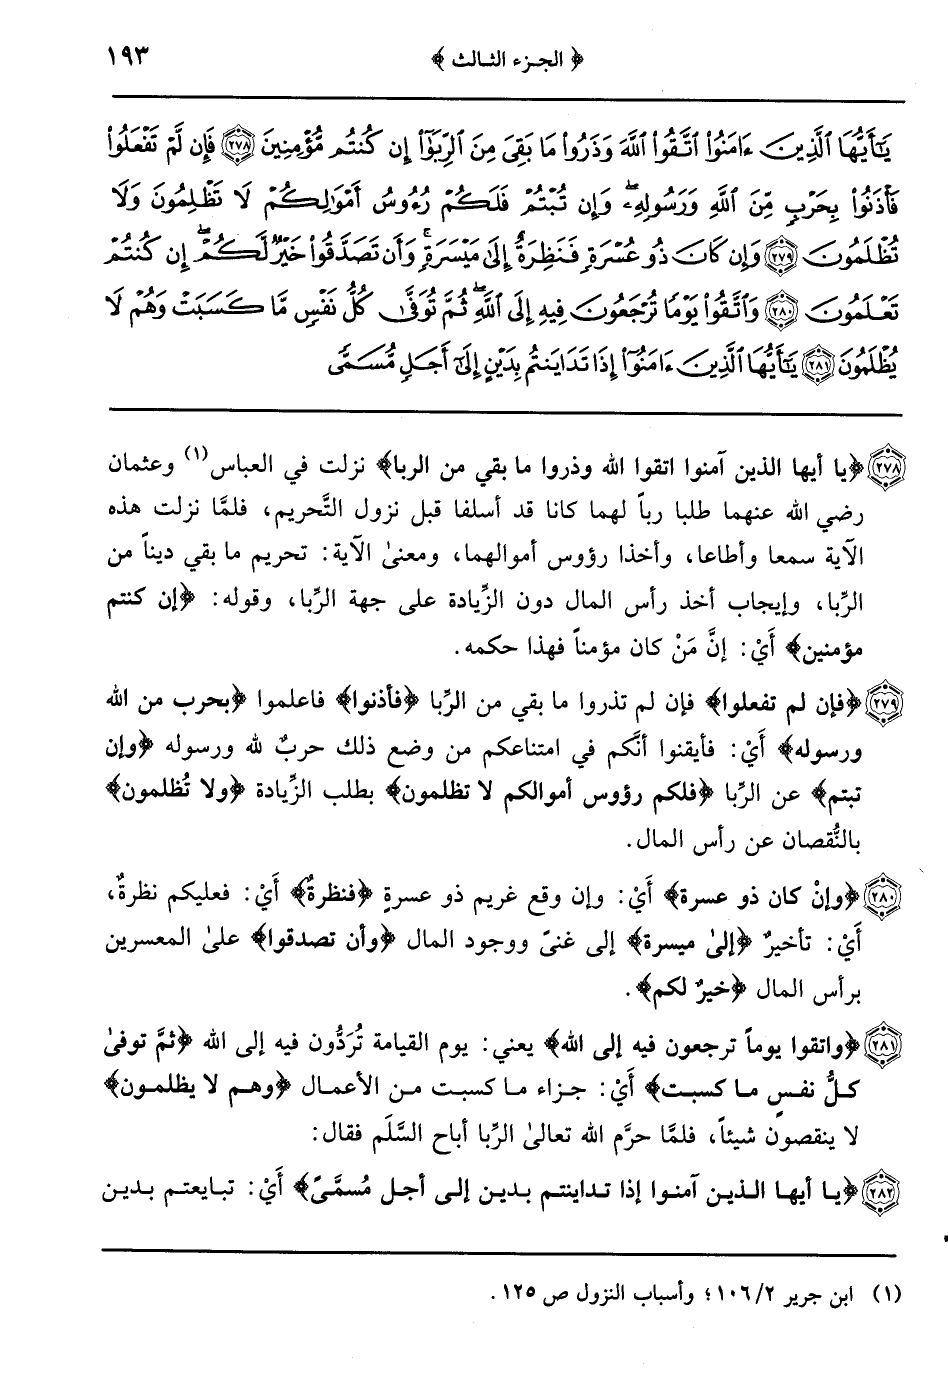 ﴿ الجزء الثالث ﴾ ١٩٣
يَٰٓأَيُّهَا ٱلَّذِينَ ءَامَنُوا۟ ٱتَّقُوا۟ ٱللَّهَ وَذَرُوا۟ مَا بَقِىَ مِنَ ٱلرِّبَوٰٓا۟ إِن كُنتُم مُّؤْمِنِينَ ﴿٢٧٨﴾ فَإِن لَّمْ تَفْعَلُوا۟
فَأْذَنُوا۟ بِحَرْبٍ مِّنَ ٱللَّهِ وَرَسُولِهِۦ ۖ وَإِن تُبْتُمْ فَلَكُمْ رُءُوسُ أَمْوَٰلِكُمْ لَا تَظْلِمُونَ وَلَا
تُظْلَمُونَ ﴿٢٧٩﴾ وَإِن كَانَ ذُو عُسْرَةٍ فَنَظِرَةٌ إِلَىٰ مَيْسَرَةٍ ۚ وَأَن تَصَدَّقُوا۟ خَيْرٌ لَّكُمْ ۖ إِن كُنتُمْ
تَعْلَمُونَ ﴿٢٨٠﴾ وَٱتَّقُوا۟ يَوْمًا تُرْجَعُونَ فِيهِ إِلَى ٱللَّهِ ۖ ثُمَّ تُوَفَّىٰ كُلُّ نَفْسٍ مَّا كَسَبَتْ وَهُمْ لَا
يُظْلَمُونَ ﴿٢٨١﴾ يَٰٓأَيُّهَا ٱلَّذِينَ ءَامَنُوٓا۟ إِذَا تَدَايَنتُم بِدَيْنٍ إِلَىٰٓ أَجَلٍ مُّسَمًّى
﴿٢٧٨﴾ ﴿يا أيها الذين آمنوا اتقوا الله وذروا ما بقي من الربا﴾ نزلت في العباس(١) وعثمان
رضي الله عنهما طلبا رباً لهما كانا قد أسلفا قبل نزول التَّحريم، فلمَّا نزلت هذه
الآية سمعا وأطاعا، وأخذا رؤوس أموالهما، ومعنىٰ الآية: تحريم ما بقي ديناً من
الرِّبا، وإيجاب أخذ رأس المال دون الزِّيادة على جهة الرِّبا، وقوله: ﴿إن كنتم
مؤمنين﴾ أَيْ: إنَّ مَنْ كان مؤمناً فهذا حكمه.
﴿٢٧٩﴾ ﴿فإن لم تفعلوا﴾ فإن لم تذروا ما بقي من الرِّبا ﴿فأذنوا﴾ فاعلموا ﴿بحرب من الله
ورسوله﴾ أَيْ: فأيقنوا أنَّكم في امتناعكم من وضع ذلك حربٌ لله ورسوله ﴿وإن
تبتم﴾ عن الرِّبا ﴿فلكم رؤوس أموالكم لا تظلمون﴾ بطلب الزِّيادة ﴿ولا تُظلمون﴾
بالنُّقصان عن رأس المال.
﴿٢٨٠﴾ ﴿وإنْ كان ذو عسرة﴾ أَيْ: وإن وقع غريم ذو عسرةٍ ﴿فنظرةٌ﴾ أَيْ: فعليكم نظرةٌ،
أَيْ: تأخيرٌ ﴿إلىٰ ميسرة﴾ إلى غنىً ووجود المال ﴿وأن تصدقوا﴾ علىٰ المعسرين
برأس المال ﴿خيرٌ لكم﴾.
﴿٢٨١﴾ ﴿واتقوا يوماً ترجعون فيه إلى الله﴾ يعني: يوم القيامة تُرَدُّون فيه إلى الله ﴿ثمَّ توفىٰ
كلُّ نفسٍ ما كسبت﴾ أَيْ: جزاء ما كسبت من الأعمال ﴿وهم لا يظلمون﴾
لا ينقصون شيئاً، فلمَّا حرَّم الله تعالىٰ الرِّبا أباح السَّلَم فقال:
﴿٢٨٢﴾ ﴿يا أيها الذين آمنوا إذا تداينتم بدين إلى أجل مُسمَّىً﴾ أَيْ: تبايعتم بدين
(١) ابن جرير ٢/ ١٠٦؛ وأسباب النزول ص ١٢٥.